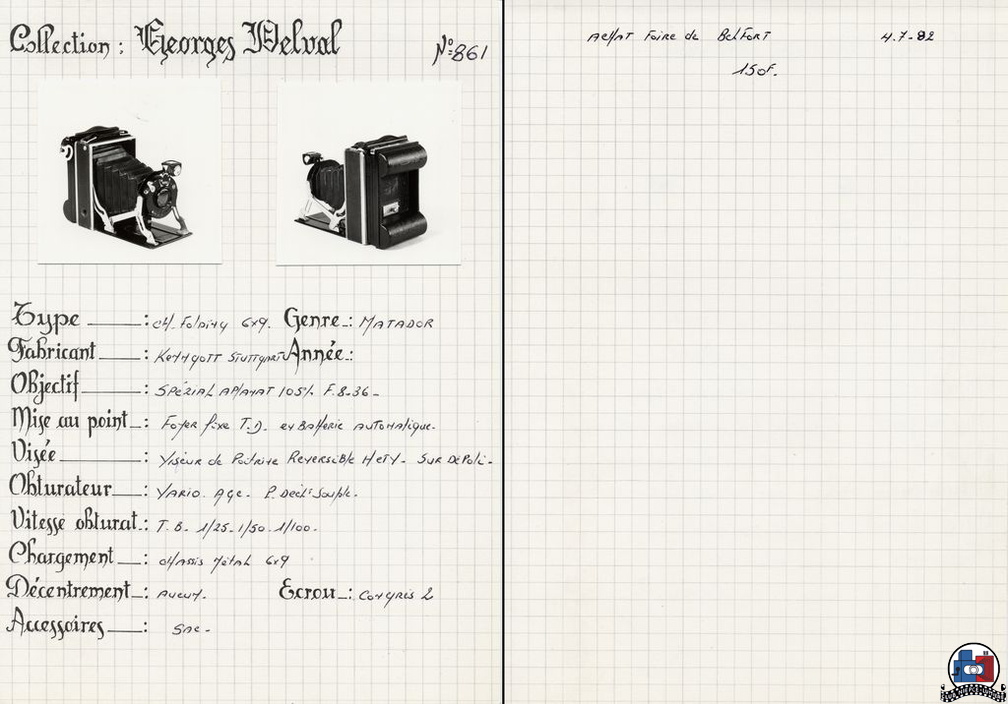 Collection : Georges Delval
N° 861
Type : ch. Folding 6x9. Genre : MATADOR
Fabricant : STUTTGART Année :
Objectif : SPÉZIAL APLANAT 105% F.8-36 -
Mise au point : Foyer fixe T.D. en Batterie AUTOMATIQUE.
Visée : Viseur de Poitrine Reversible - SUR DéPoli -
Obturateur : VARIO. AGC. P. Souple.
Vitesse obturat. : T. B. 1/25 - 1/50 - 1/100 -
Chargement : chassis Métal 6x9
Décentrement : Aucun. Ecrou : Congrès 2
Accessoires : Sac -
ACHAT Foire de BELFORT 4.7-82
150F.